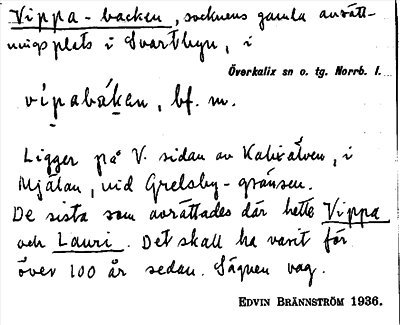 Vippa-backen, socknens gamla avrätt-
ningsplats i Svartbyn, i
Överkalix sn o. tg. Norrb. l.
vìpabákan, bf. m.
Ligger på V. sidan av Kalixälven, i
Mjälan, vid Grelsby-gränsen.
De sista som avrättades där hette Vippa
och Lauri. Det skall ha varit för
över 100 år sedan. Sägnen vag.
EDVIN BRÄNNSTRÖM 1936.